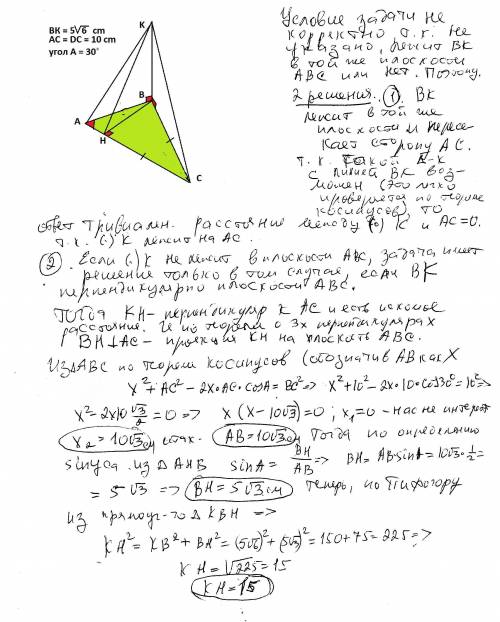 BK = 5√6 cm
AC = DC = 10 cm
угол A = 30°
K
B
A
H
C
Условие задачи не
корректно т.к. не
указано, лежит BK
в той же плоскости
ABC или нет. Поэтому
2 решения. ① BK
лежит в той же
плоскости и пересе-
кает сторону AC.
т.к. такой
с линией BK воз-
можен (это легко
проверяется по теореме
косинусов), то
ответ тривиальн. расстояние между (·) K и AC=0.
т.к. (·) K лежит на AC.
② Если (·) K не лежит в плоскости ABC, задача имеет
решение только в том случае, если BK
перпендикулярно плоскости ABC.
Тогда KH - перпендикуляр к AC и есть искомое
расстояние. И по теореме о 3х перпендикулярах
BH⊥AC - проекция KH на плоскость ABC.
Из ΔABC по теореме косинусов (обозначив AB как X
X² + AC² - 2X·AC·cosA = BC² => X² + 10² - 2X·10·cos30° = 10² =>
X² - 2X10 √3/2 = 0 => X(X - 10√3) = 0; x₁ = 0 - нас не интерес
X₂ = 10√3 см итак. AB = 10√3 см Тогда по определению
синуса из ΔAHB sinA = BH/AB => BH = AB sinA = 10√3·1/2 =
= 5√3 => BH = 5√3 см теперь, по Пифагору
из прямоуг-го Δ KBH =>
KH² = KB² + BH² = (5√6)² + (5√3)² = 150 + 75 = 225 =>
KH = √225 = 15
KH = 15